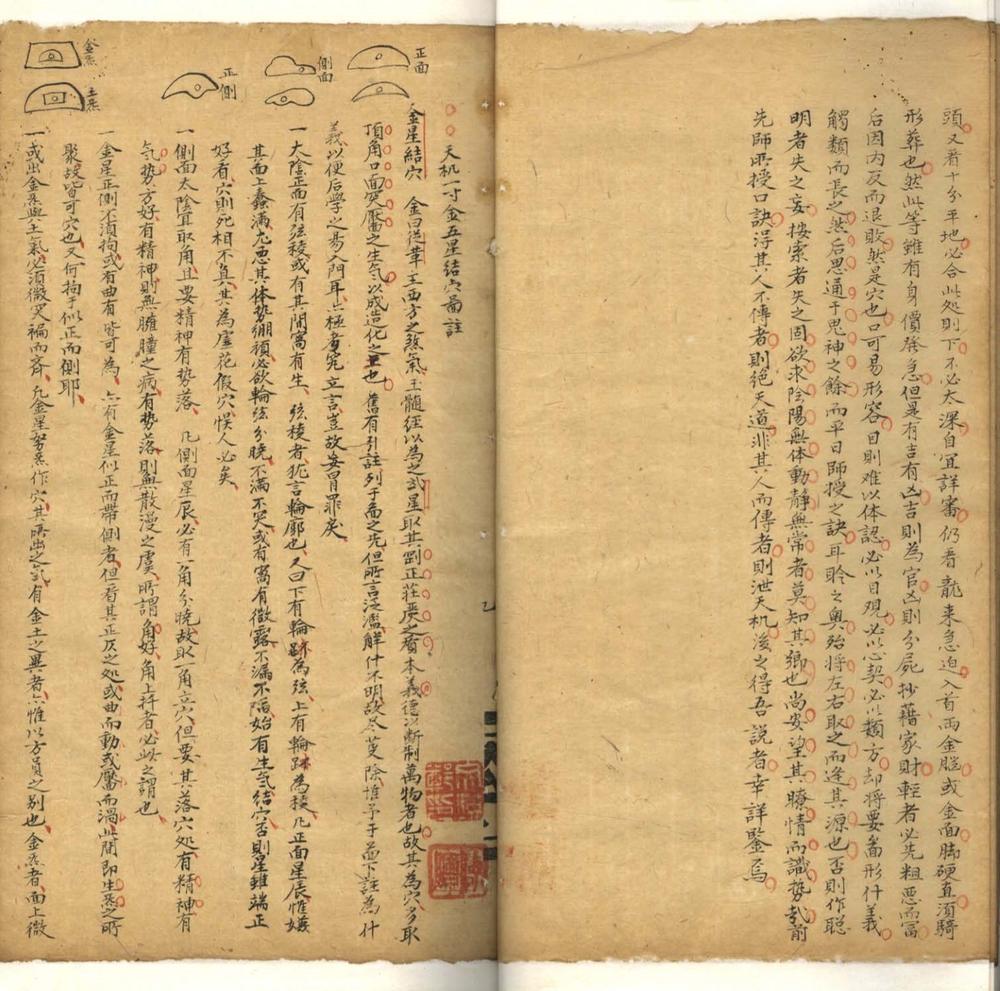 頭又看十分平地必合此処則下不必太深自宜詳審仍看龍来急迫入首而金腦或金面脚硬直須騎
形葬也然此等雖有身價発急但是有吉有凶吉則為官凶則分屍抄藉家財輕者必先粗惡而冨
后因内反而退敗然是穴也口可易形容目則难以体認必以目观必以心契必以類方却将要畨形什義
觸類而長之然后思通于鬼神之餘而平日師授之訣耳聆之奥殆将左右取之而逢其源也否則作聪
明者失之妄按索者失之固欲求陰陽無体動靜無常者莫知其鄉也尚安望其瞭情而識势哉前
先師所授口訣得其人不傳者則绝天道非其人而傳者則泄天机後之得吾説者幸詳鑒焉
天机一寸金五星結穴畨註
正面
側面
正側
金㷛
土㷛
金星結穴 金曰從革王西方之煞氣玉髓經以為之武星取其剛正莊严之資本義德以断制萬物者也故其為穴多取
頂角口面突靨之生气以成造化之主也 舊有引註列于畨之先但所言泛濫觧什不明故尽芟除惟予于畨下註為什
義以便后學之易入門耳亡極者宪立言豈故妄冒罪戾
一太陰正面有弦稜或有其開窩有生 弦稜者犹言輪廓也又曰下有輪跡為弦上有輪跡為稜凢正面星辰惟嫌
其面上蠢滿尤惡其体势绷頑必欲輪弦分暁不滿不突或有窩有微露不漏不陷始有生气結穴否則星雖端正
好看穴則死相不真其為虛花假穴悮人必矣
一側面太陰宜取角且要精神有势落 凢側面星辰必有一角分暁故取一角立穴但要其落穴処有精神有
气势方好有精神則無臃腫之病有势落則無散漫之虞所謂角好角上扦者必此之謂也
一金星正側不湏拘或有曲有皆可為 亦有金星似正而帶側者但看其正仄之处或曲而動或靨而渦此間即生㷛之所
聚故皆可穴也又何拘于似正而側耶
一或出金㷛與土氣必須微突褊而斉 凢金星努㷛作穴其所出之氣有金土之異者亦惟以方員之别也金㷛者面上微